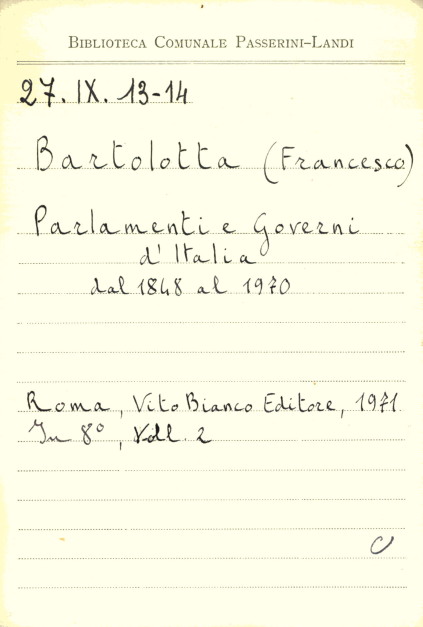 BIBLIOTECA COMUNALE PASSERINI-LANDI
27. IX. 13-14
Bartolotta (Francesco)
Parlamenti e Governi
d'Italia
dal 1848 al 1970
Roma, Vito Bianco Editore, 1971
In 8º, Voll. 2